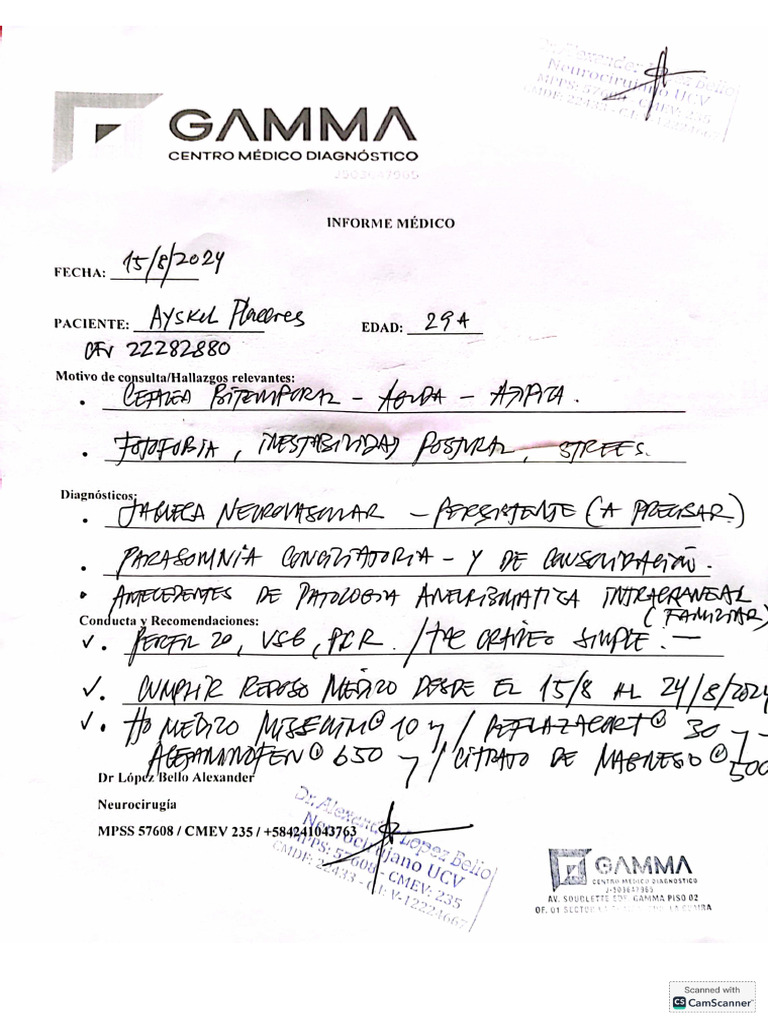 Dr. Alexander López Bello
Neurocirujano UCV
MPPS: 57608 - CMEV: 235
CMDF: 22433 - C.I: V-12224667
GAMMA
CENTRO MÉDICO DIAGNÓSTICO
J503647965
INFORME MÉDICO
FECHA: 15/8/2024
PACIENTE: Ayskel Placeres EDAD: 29A
22282880
Motivo de consulta/Hallazgos relevantes:
• CEFALEA BITEMPORAL - AGUDA - ATIPICA.
• FOTOFOBIA, INESTABILIDAD POSTURAL, STREES.
Diagnósticos:
• JAQUECA NEUROVASCULAR - PERSISTENTE (A PRECISAR)
• PARASOMNIA CONCILIATORIA - Y DE CONSOLIDACIÓN.
• ANTECEDENTES DE PATOLOGIA ANEURISMATICA INTRACRANEAL
(FAMILIAR)
Conducta y Recomendaciones:
✓. PERFIL 20, VSG, PCR. / TAC CRANEO SIMPLE. —
✓. CUMPLIR REPOSO MÉDICO DESDE EL 15/8 AL 24/8/2024
✓ • TTO MÉDICO 10 / DEFLAZACORT® 30
ACETAMINOFEN® 650 / CITRATO DE MAGNESIO® 500
Dr López Bello Alexander
Neurocirugía
MPSS 57608 / CMEV 235 / +584241043763
Dr. Alexander López Bello
Neurocirujano UCV
MPPS: 57608 - CMEV: 235
CMDF: 22433 - C.I: V-12224667
GAMMA
CENTRO MÉDICO DIAGNÓSTICO
J-503647965
AV. SOUBLETTE EDF. GAMMA PISO 02
OF. 01 SECTOR LA GUAIRA
Scanned with
CS CamScanner